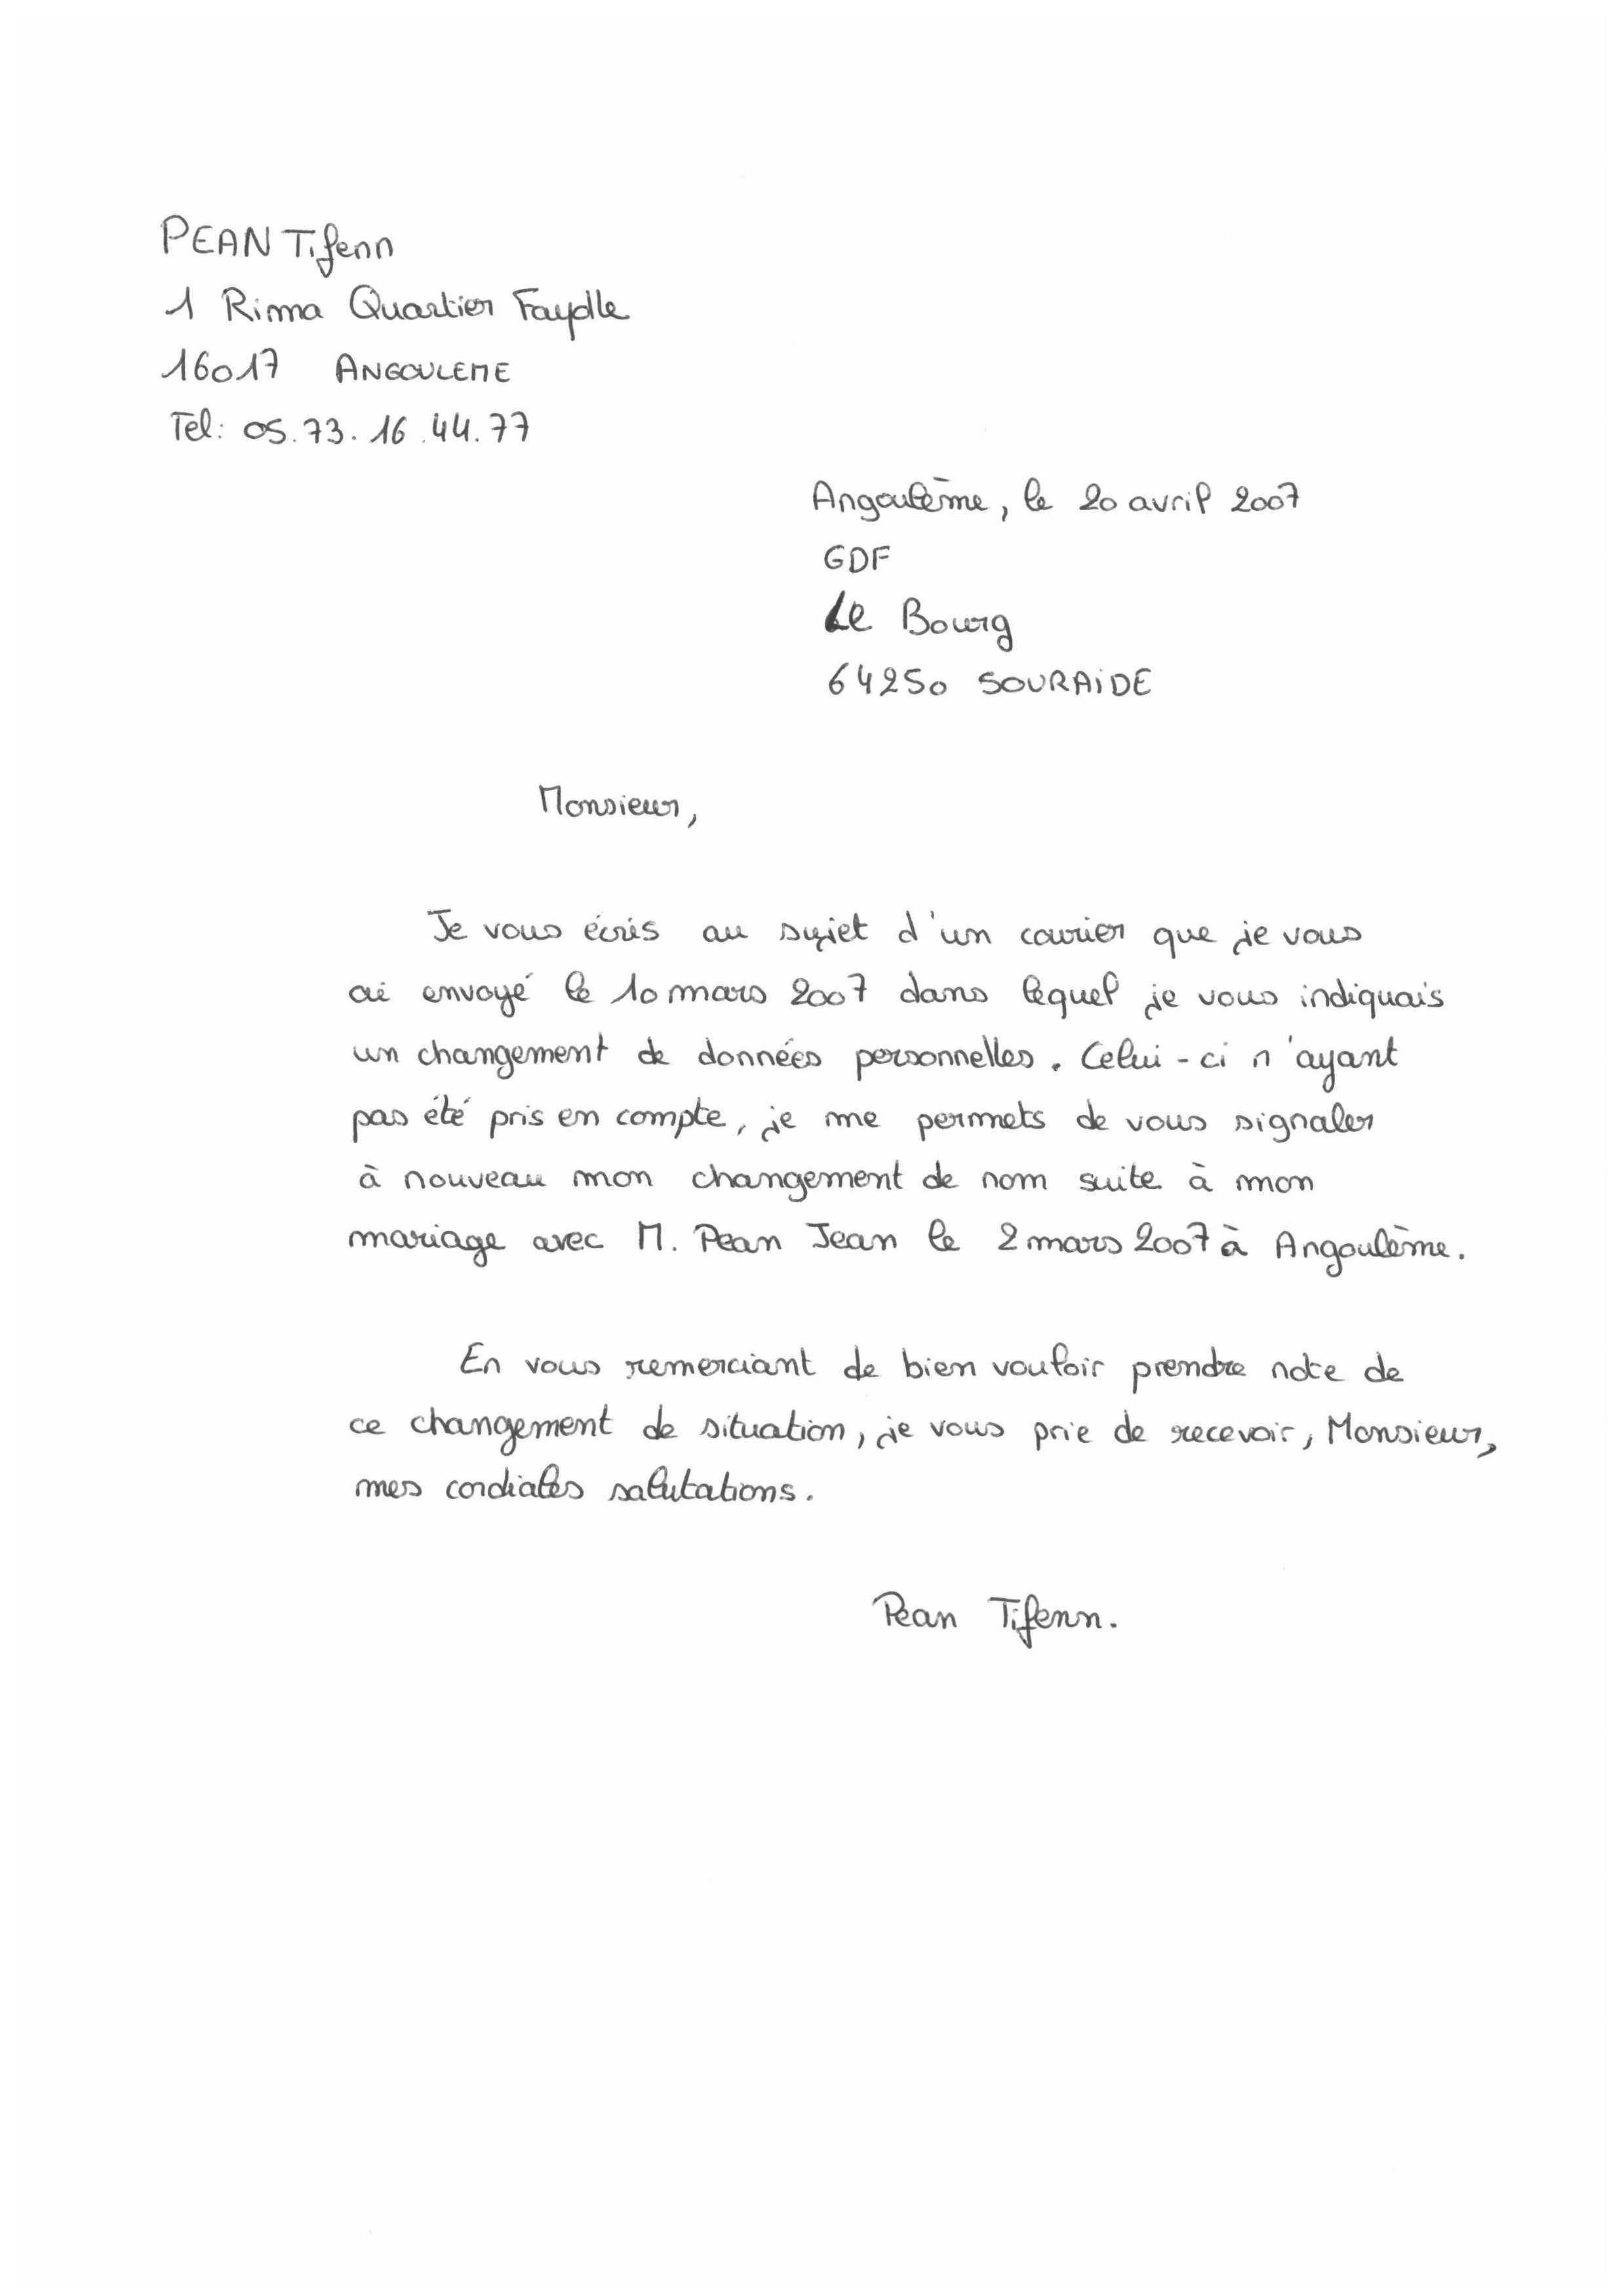 PEAN Tifenn
1 Rima Quartier Faydlle
16017 ANGOULEME
Tel: 05.73.16.44.77
Angoulême, le 20 avril 2007
GDF
Le Bourg
64250 SOURAIDE
Monsieur,
Je vous écris au sujet d'un courier que je vous
ai envoyé le 10 mars 2007 dans lequel je vous indiquais
un changement de données personnelles. Celui-ci n'ayant
pas été pris en compte, je me permets de vous signaler
à nouveau mon changement de nom suite à mon
mariage avec M. Pean Jean le 2 mars 2007 à Angoulême.
En vous remerciant de bien vouloir prendre note de
ce changement de situation, je vous prie de recevoir, Monsieur,
mes cordiales salutations.
Pean Tifenn.